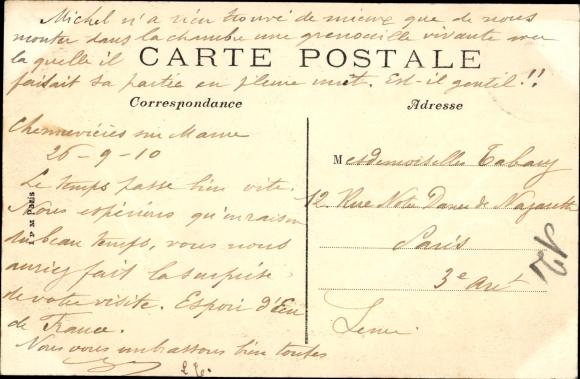 Michel n'a rien trouvé de mieux que de nous
monter dans la chambre une grenouille vivante avec
la quelle il
CARTE POSTALE
faisait sa partie en pleine nuit. Est-il gentil!!
Correspondance
Adresse
Chennevières sur Marne
26-9-10
Le temps passe bien vite.
Nous espérions qu'en raison
du beau temps, vous nous
auriez fait la surprise
de votre visite. Espoir d'Eu
de France.
Nous vous embrassons bien toutes
Mesdemoiselles Tabary
12 Rue Notre Dame de Nazareth
Paris
3e Arrt
72
I P M Paris